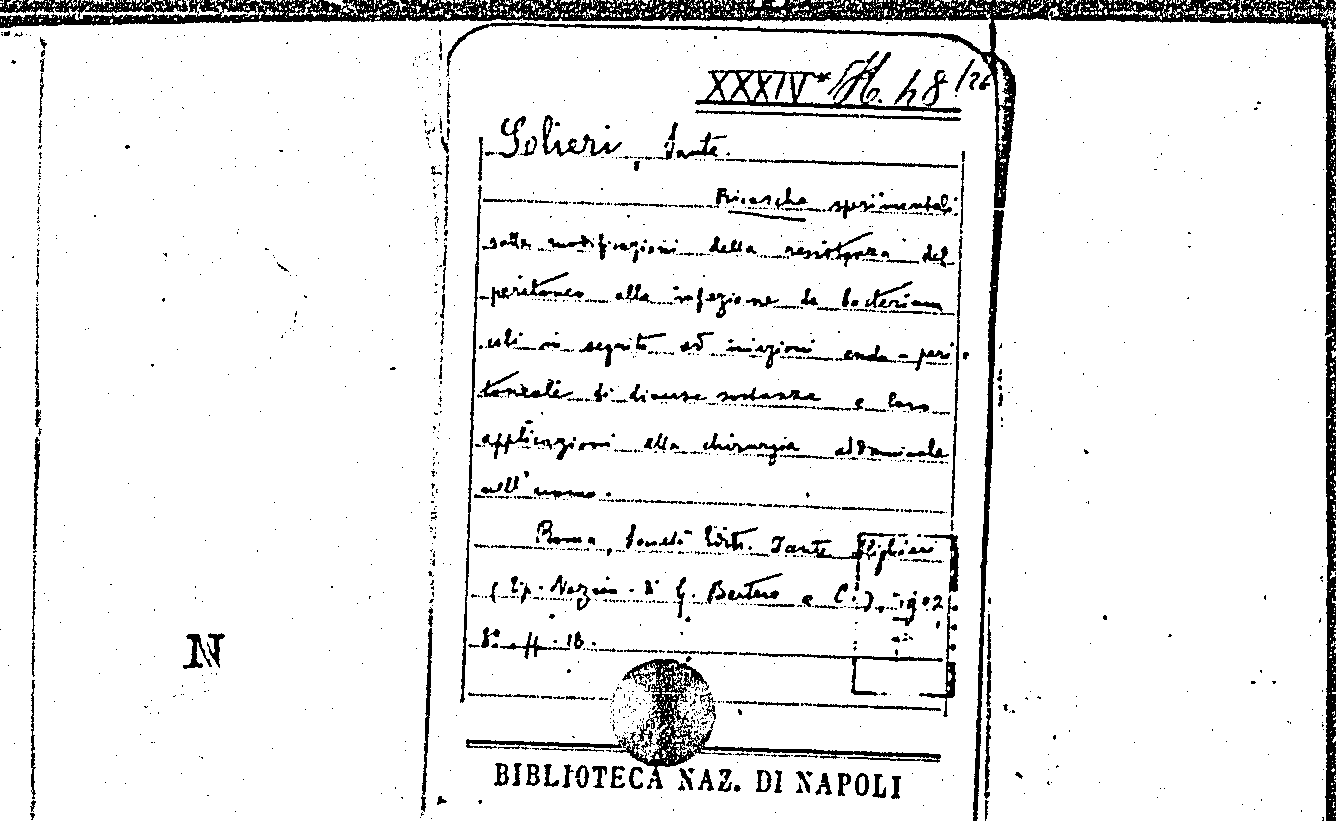 XXXIV* H. 48/26
Solieri, Sante.
Ricerche sperimentali
sulle modificazioni della resistenza del
peritoneo alla infezione da bacterium
coli in seguito ad iniezioni endo-peri
toneali di diverse sostanze e loro
applicazioni alla chirurgia addominale
nell'uomo.
Roma, Società Editr. Dante Alighieri
(Tip. Nazion. di G. Bertero e C.), 1902,
8° pp. 18.
N
BIBLIOTECA NAZ. DI NAPOLI